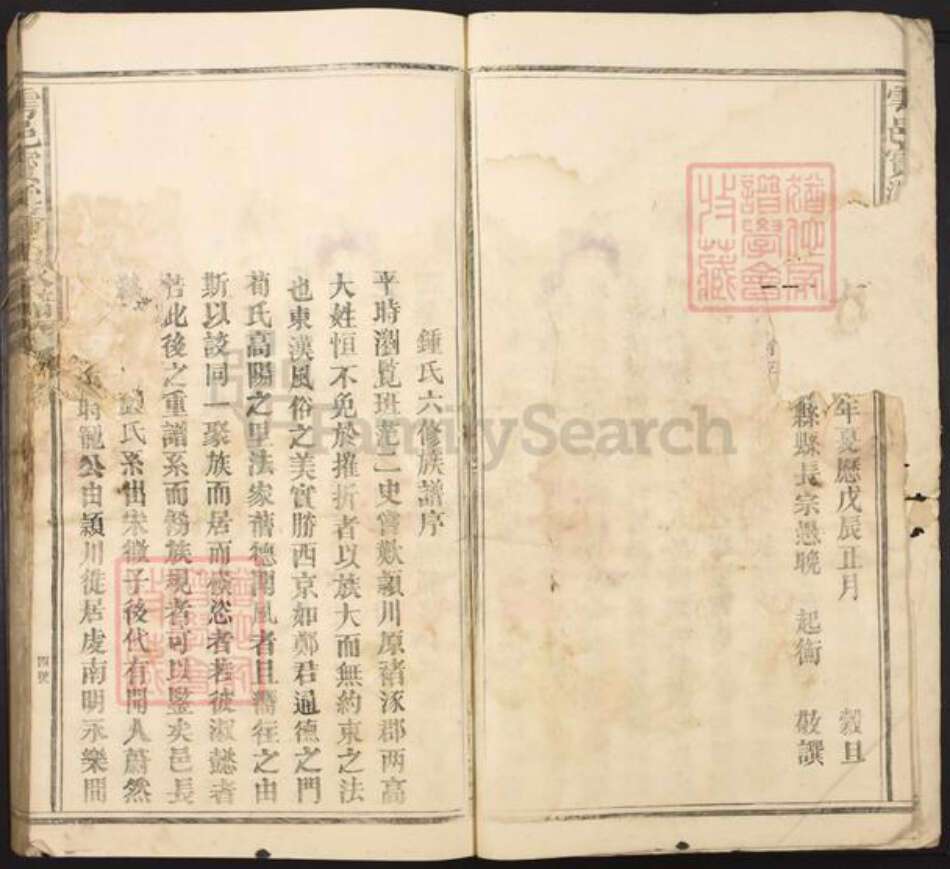 年夏歷戊辰正月 穀旦
縣縣長宗愚晚 起衡 敬譔
鍾氏六修族譜序
平時瀏覧班范二史嘗歎潁川原褚涿郡两高
大姓恒不免於摧折者以族大而無約束之法
也東漢風俗之美實勝西京如鄭君通德之門
荀氏高陽之里法家舊德聞風者且嚮往之由
斯以談同一聚族而居而恣者若彼淑懿者
若此後之重譜系而族現者可以鑒矣邑長
氏系出宋微子後代有聞人蔚然
時公由潁川徙居虔南明永樂間
四號
譜學會
收藏
FamilySearch